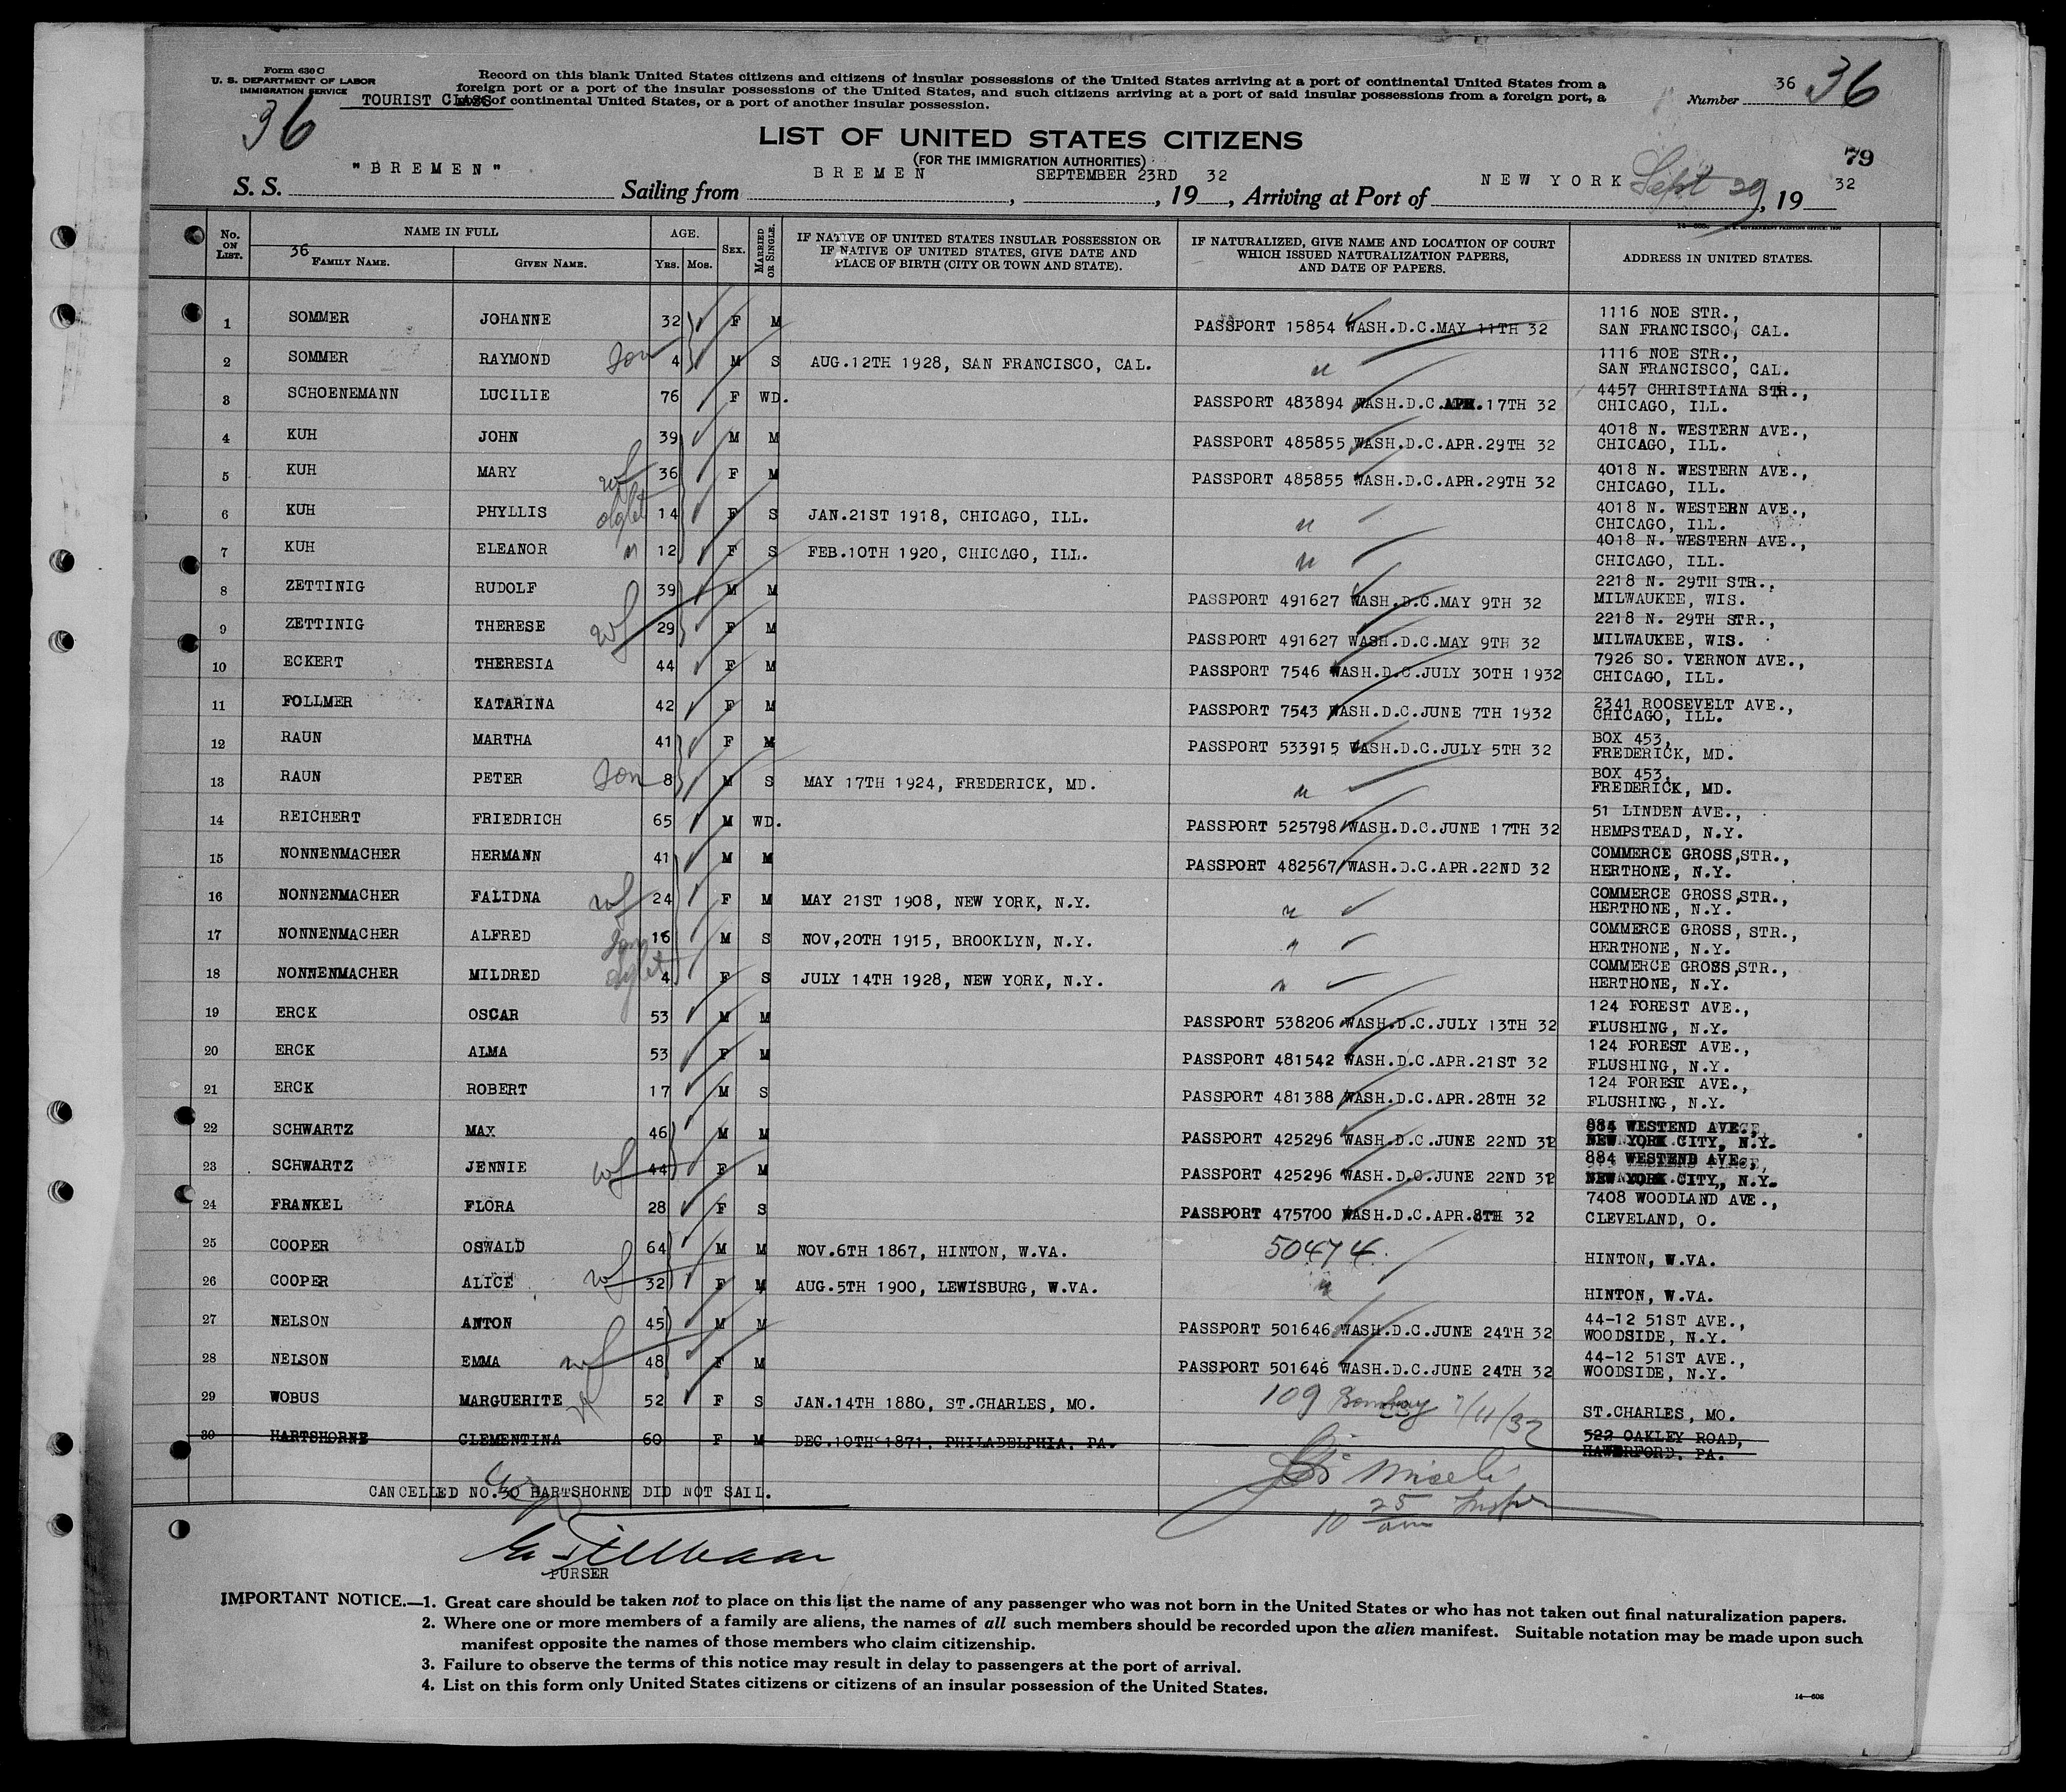 Form 630 C
U. S. DEPARTMENT OF LABOR
IMMIGRATION SERVICE
TOURIST CLASS
36
Record on this blank United States citizens and citizens of insular possessions of the United States arriving at a port of continental United States from a
foreign port or a port of the insular possessions of the United States, and such citizens arriving at a port of said insular possessions from a foreign port, a
of continental United States, or a port of another insular possession.
Number 36 36
LIST OF UNITED STATES CITIZENS
(FOR THE IMMIGRATION AUTHORITIES)
79
S. S. "BREMEN" Sailing from BREMEN, SEPTEMBER 23RD, 19 32, Arriving at Port of NEW YORK Sept 29, 19 32
No. ON LIST. NAME IN FULL 36 FAMILY NAME. GIVEN NAME. AGE. YRS. MOS. SEX. MARRIED OR SINGLE. IF NATIVE OF UNITED STATES INSULAR POSSESSION OR IF NATIVE OF UNITED STATES, GIVE DATE AND PLACE OF BIRTH (CITY OR TOWN AND STATE). IF NATURALIZED, GIVE NAME AND LOCATION OF COURT WHICH ISSUED NATURALIZATION PAPERS, AND DATE OF PAPERS. ADDRESS IN UNITED STATES.
1 SOMMER JOHANNE 32 F M PASSPORT 15854 WASH.D.C.MAY 11TH 32 1116 NOE STR., SAN FRANCISCO, CAL.
2 SOMMER RAYMOND Son 4 M S AUG.12TH 1928, SAN FRANCISCO, CAL. " 1116 NOE STR., SAN FRANCISCO, CAL.
3 SCHOENEMANN LUCILIE 76 F WD. PASSPORT 483894 WASH.D.C.APR.17TH 32 4457 CHRISTIANA STR., CHICAGO, ILL.
4 KUH JOHN 39 M M PASSPORT 485855 WASH.D.C.APR.29TH 32 4018 N. WESTERN AVE., CHICAGO, ILL.
5 KUH MARY wf 36 F M PASSPORT 485855 WASH.D.C.APR.29TH 32 4018 N. WESTERN AVE., CHICAGO, ILL.
6 KUH PHYLLIS dght 14 F S JAN.21ST 1918, CHICAGO, ILL. " 4018 N. WESTERN AVE., CHICAGO, ILL.
7 KUH ELEANOR " 12 F S FEB.10TH 1920, CHICAGO, ILL. " 4018 N. WESTERN AVE., CHICAGO, ILL.
8 ZETTINIG RUDOLF 39 M M PASSPORT 491627 WASH.D.C.MAY 9TH 32 2218 N. 29TH STR., MILWAUKEE, WIS.
9 ZETTINIG THERESE wf 29 F M PASSPORT 491627 WASH.D.C.MAY 9TH 32 2218 N. 29TH STR., MILWAUKEE, WIS.
10 ECKERT THERESIA 44 F M PASSPORT 7546 WASH.D.C.JULY 30TH 1932 7926 SO. VERNON AVE., CHICAGO, ILL.
11 FOLLMER KATARINA 42 F M PASSPORT 7543 WASH.D.C.JUNE 7TH 1932 2341 ROOSEVELT AVE., CHICAGO, ILL.
12 RAUN MARTHA 41 F M PASSPORT 533915 WASH.D.C.JULY 5TH 32 BOX 453, FREDERICK, MD.
13 RAUN PETER Son 8 M S MAY 17TH 1924, FREDERICK, MD. " BOX 453, FREDERICK, MD.
14 REICHERT FRIEDRICH 65 M WD. PASSPORT 525798 WASH.D.C.JUNE 17TH 32 51 LINDEN AVE., HEMPSTEAD, N.Y.
15 NONNENMACHER HERMANN 41 M M PASSPORT 482567 WASH.D.C.APR.22ND 32 COMMERCE GROSS,STR., HERTHONE, N.Y.
16 NONNENMACHER FALIDNA wf 24 F M MAY 21ST 1908, NEW YORK, N.Y. " COMMERCE GROSS,STR., HERTHONE, N.Y.
17 NONNENMACHER ALFRED Son 16 M S NOV,20TH 1915, BROOKLYN, N.Y. " COMMERCE GROSS, STR., HERTHONE, N.Y.
18 NONNENMACHER MILDRED dght 4 F S JULY 14TH 1928, NEW YORK, N.Y. " COMMERCE GROSS,STR., HERTHONE, N.Y.
19 ERCK OSCAR 53 M M PASSPORT 538206 WASH.D.C.JULY 13TH 32 124 FOREST AVE., FLUSHING, N.Y.
20 ERCK ALMA 53 F M PASSPORT 481542 WASH.D.C.APR.21ST 32 124 FOREST AVE., FLUSHING, N.Y.
21 ERCK ROBERT 17 M S PASSPORT 481388 WASH.D.C.APR.28TH 32 124 FOREST AVE., FLUSHING, N.Y.
22 SCHWARTZ MAX 46 M M PASSPORT 425296 WASH.D.C.JUNE 22ND 31 884 WESTEND AVE., NEW YORK CITY, N.Y.
23 SCHWARTZ JENNIE wf 44 F M PASSPORT 425296 WASH.D.C.JUNE 22ND 31 884 WESTEND AVE., NEW YORK CITY, N.Y.
24 FRANKEL FLORA 28 F S PASSPORT 475700 WASH.D.C.APR.8TH 32 7408 WOODLAND AVE., CLEVELAND, O.
25 COOPER OSWALD 64 M M NOV.6TH 1867, HINTON, W.VA. 50474 HINTON, W.VA.
26 COOPER ALICE wf 32 F M AUG.5TH 1900, LEWISBURG, W.VA. " HINTON, W.VA.
27 NELSON ANTON 45 M M PASSPORT 501646 WASH.D.C.JUNE 24TH 32 44-12 51ST AVE., WOODSIDE, N.Y.
28 NELSON EMMA wf 48 F M PASSPORT 501646 WASH.D.C.JUNE 24TH 32 44-12 51ST AVE., WOODSIDE, N.Y.
29 WOBUS MARGUERITE 52 F S JAN.14TH 1880, ST.CHARLES, MO. 109 Bombay 2/11/32 ST.CHARLES, MO.
30 HARTSHORNE CLEMENTINA 60 F M DEC.10TH 1871, PHILADELPHIA, PA. 522 OAKLEY ROAD, HAVERFORD, PA.
CANCELLED NO.30 HARTSHORNE DID NOT SAIL.
10 25 am
PURSER
IMPORTANT NOTICE.—1. Great care should be taken not to place on this list the name of any passenger who was not born in the United States or who has not taken out final naturalization papers.
2. Where one or more members of a family are aliens, the names of all such members should be recorded upon the alien manifest. Suitable notation may be made upon such
manifest opposite the names of those members who claim citizenship.
3. Failure to observe the terms of this notice may result in delay to passengers at the port of arrival.
4. List on this form only United States citizens or citizens of an insular possession of the United States.
14—608